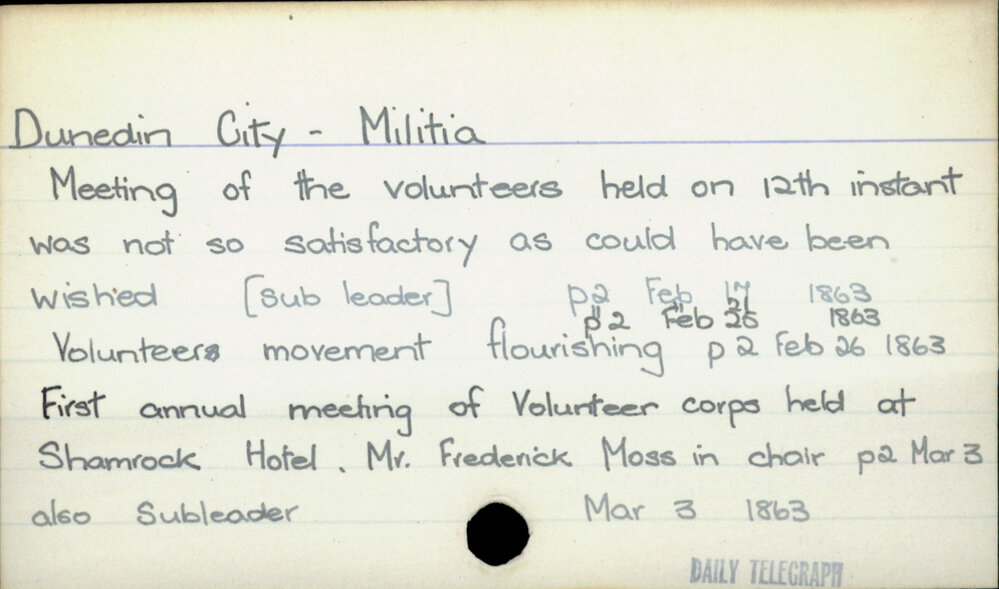 Dunedin City - Militia
Meeting of the volunteers held on 12th instant
was not so satisfactory as could have been
wished [sub leader] p2 Feb 17 1863
" 21
p2 Feb 25 1863
Volunteers movement flourishing p2 Feb 26 1863
First annual meeting of Volunteer corps held at
Shamrock Hotel. Mr. Frederick Moss in chair p2 Mar 3
also Subleader Mar 3 1863
DAILY TELEGRAPH